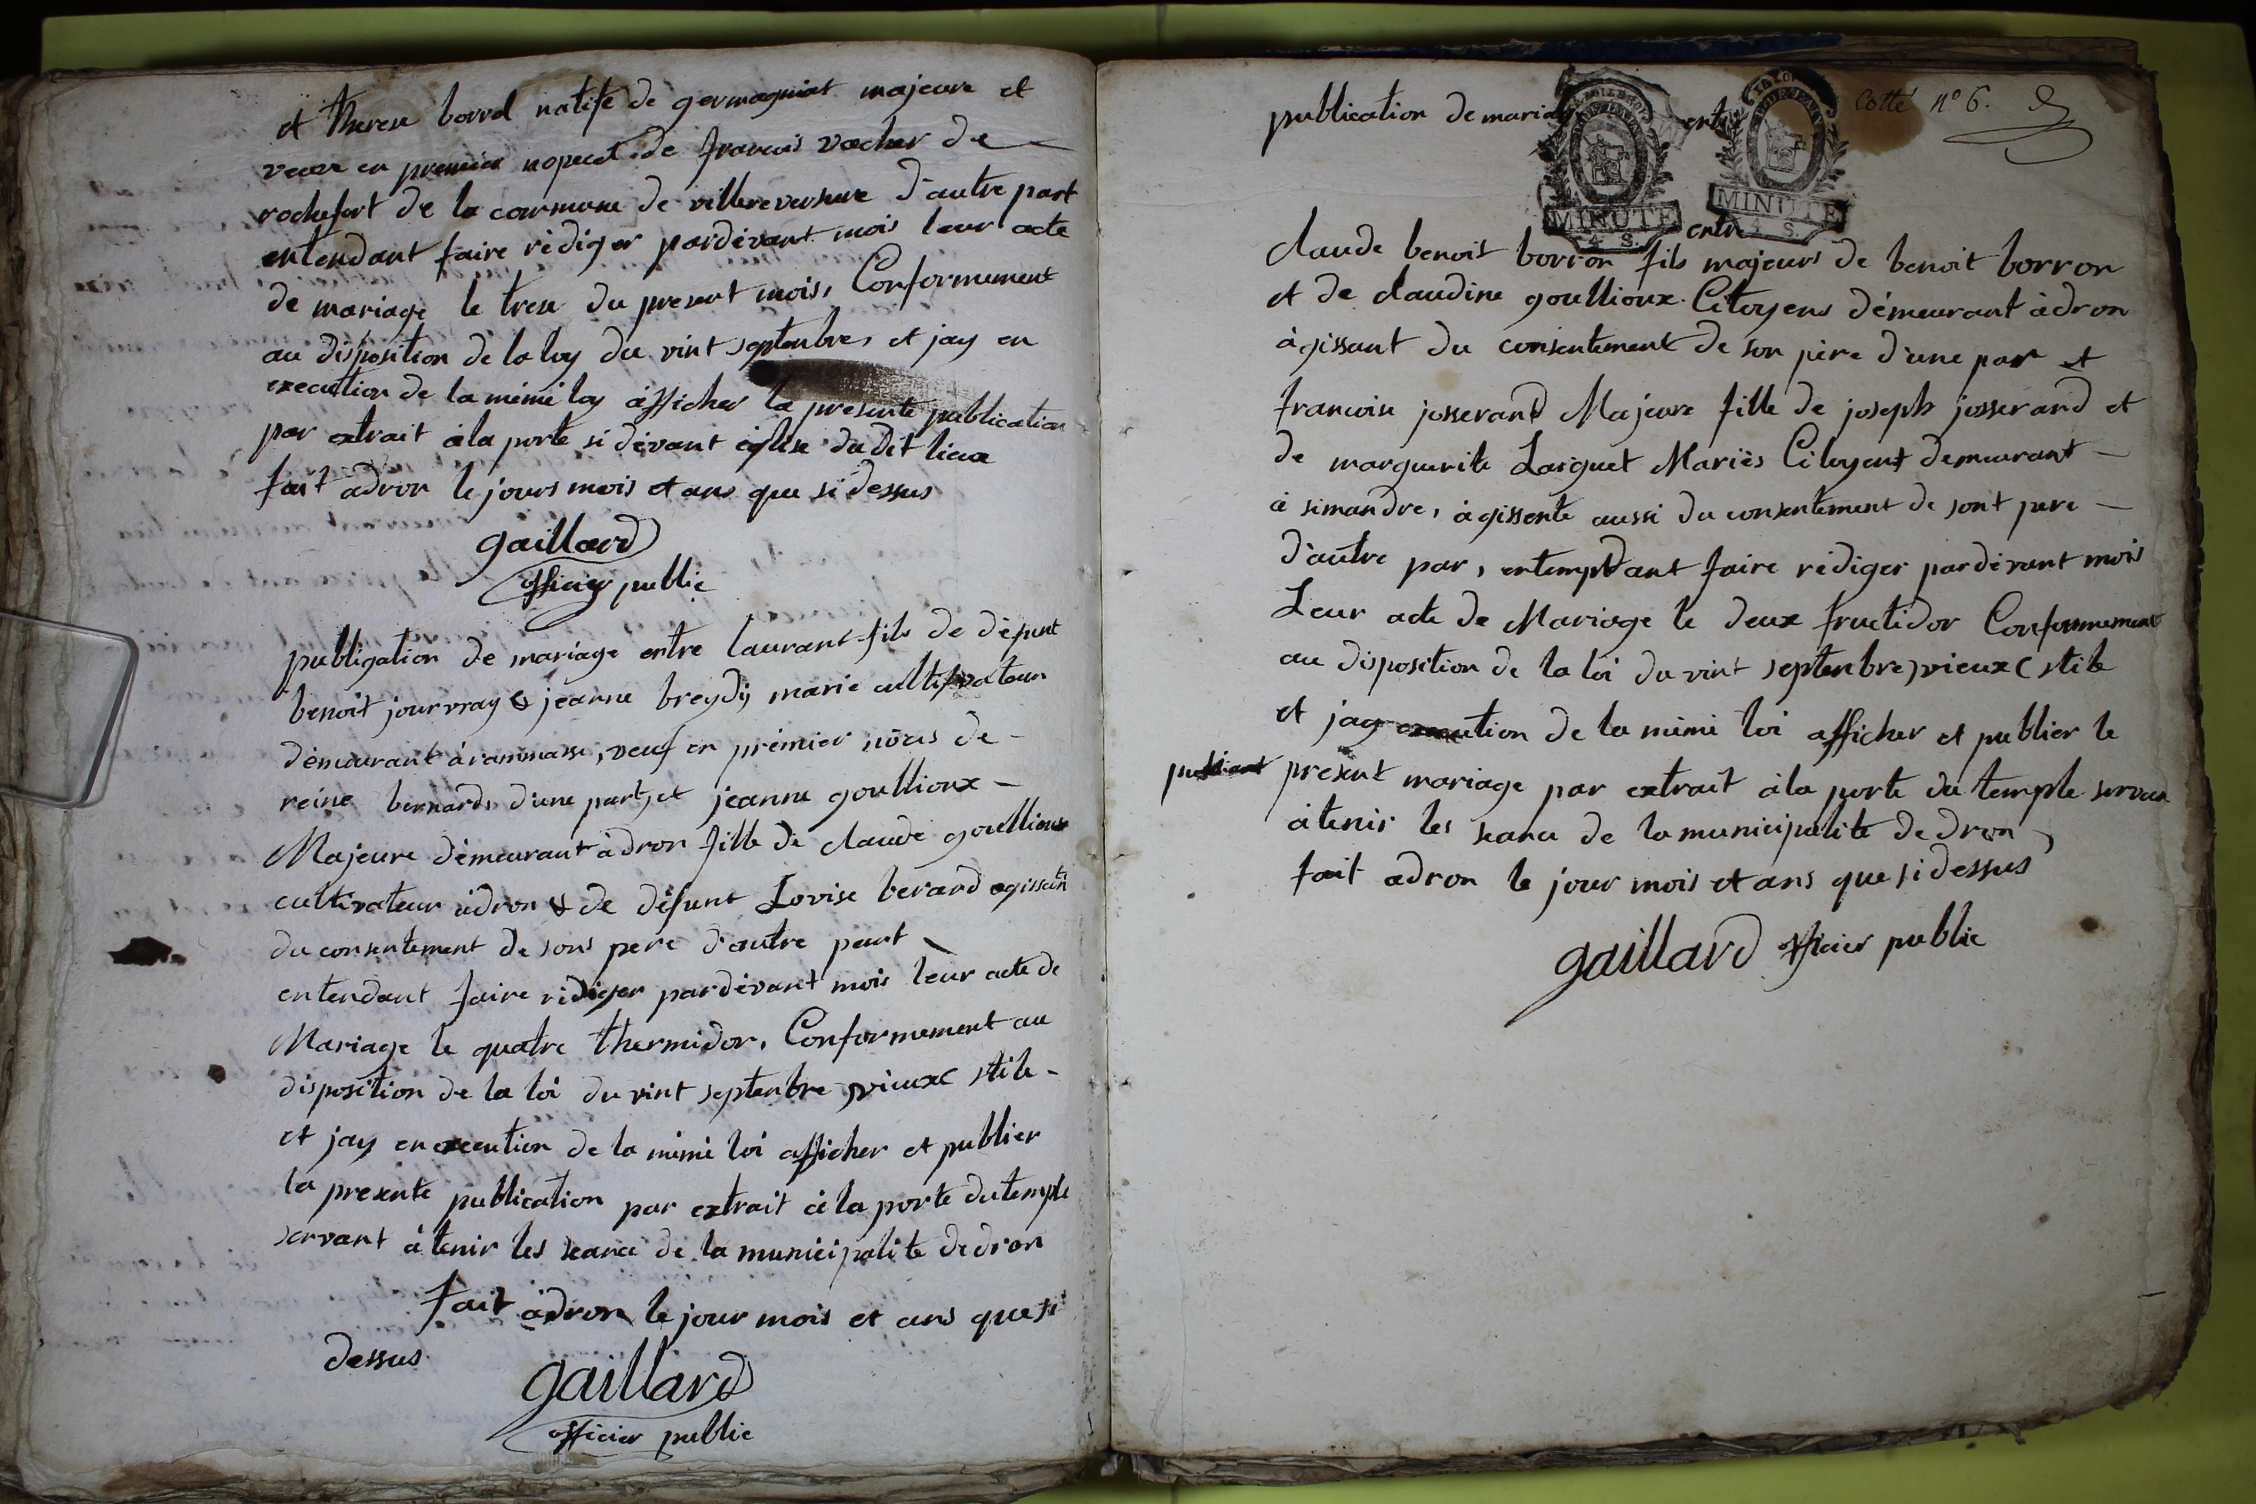 et therese borrel natife de germagniat majeure et
veuve en premier nopuet de francois vacher de
rochefort de la commune de villereversure d'autre part
entendant faire rédiger pardévant mois leur acte
de mariage le trese du present mois, Conformement
au disposition de la loy du vint septenbre, et jay en
execution de la mémé loy afficher la presente publication
par extrait à la porte si dévant église dudit lieux
fait adron le jours mois et ans que si dessus
gaillard
officier public
publigation de mariage entre laurant fils de défunt
benoit jourvray & jeanne breydy marié cultifvateur
démeurant à rammasse, veuf en prémier nôces de
reine bernard, d'une part, et jeanne goullioux
Majeure démeurant à dron fille de claude goullioux
cultivateur àdron & de défunt Lovise berard agissant
du consentement de sons pere d'autre part
entendant faire rédiger pardévant mois leur acte de
Mariage le quatre thermidor, Conformement au
disposition de la loi du vint septenbre vieux stile
et jay en execution de la mémé loi afficher et publier
la presente publication par extrait à la porte du temple
servant à tenir les seance de la municipalite de dron
fait àdron le jour mois et ans que si
dessus
gaillard
officier public
Cotté n° 6.
publication de mariage entre
MINUTE
4. S.
MINUTE
S.
entre
claude benoit borron fils majeurs de benoit borron
et de claudine goullioux Citoyens démeurant àdron
àgissant du consentement de son père d'une par et
francoise josserand Majeure fille de joseph josserand et
de marguerite Larguet Mariés Citoyent demeurant
à simandre, àgissente aussi du consentement de sont pere
d'autre par, entempdant faire rédiger pardévant mois
Leur acte de Mariage le deux fructidor Conformement
au disposition de la loi du vint septenbre vieux stile
et jay execution de la mémé loi afficher et publier le
present mariage par extrait à la porte du temple servan
à tenir les seance de la municipalite de dron
fait adron le jour mois et ans que si dessus
gaillard officier public